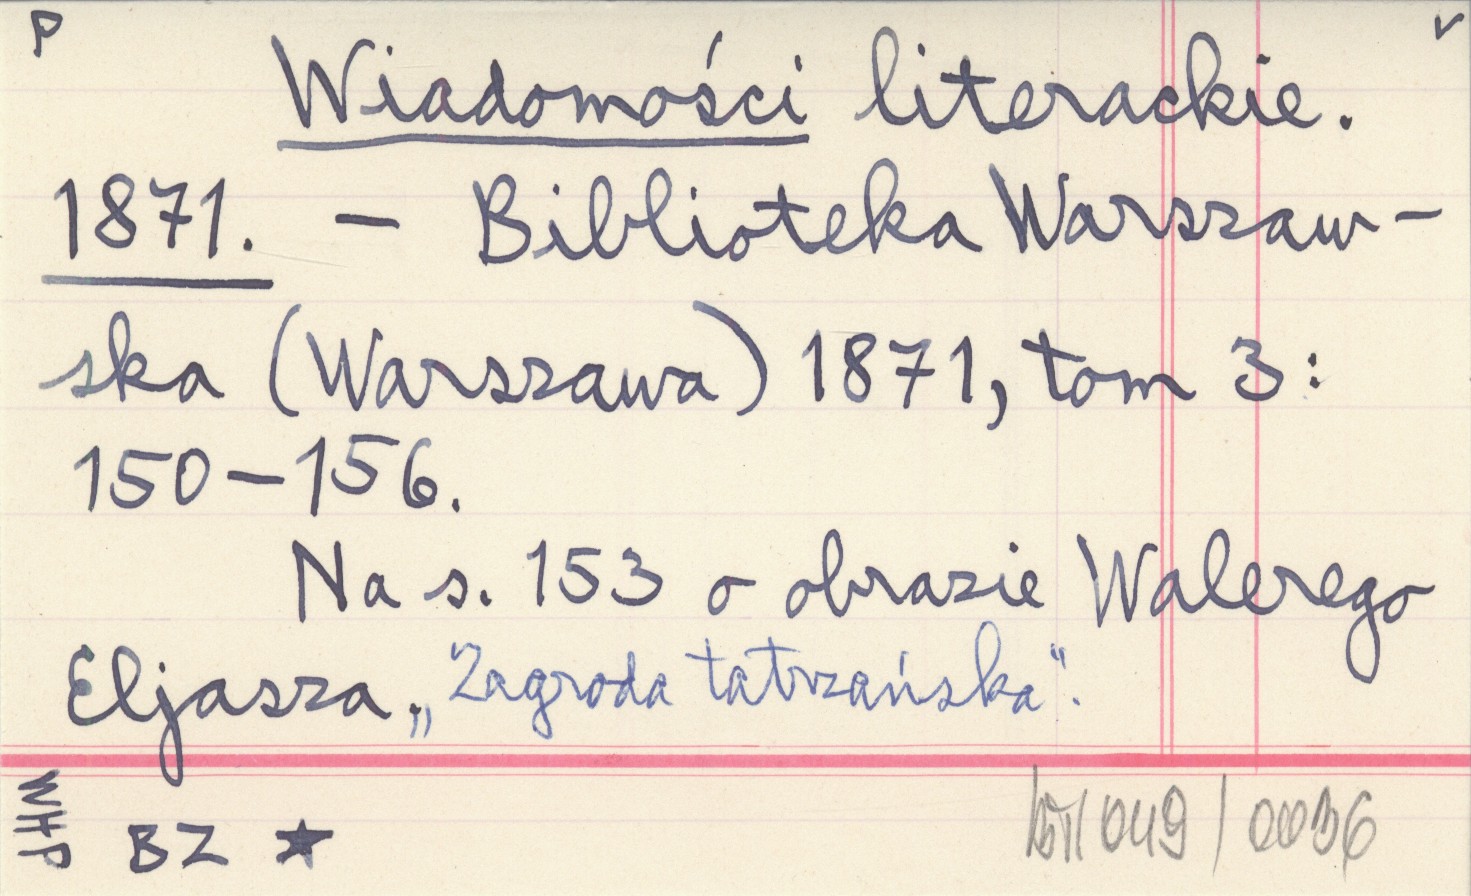 P
v
Wiadomości literackie.
1871. — Biblioteka Warszaw-
ska (Warszawa) 1871, tom 3:
150-156.
Na s. 153 o obrazie Walerego
Eljasza. „Zagroda tatrzańska".
WHP
BZ ★
049 / 0036